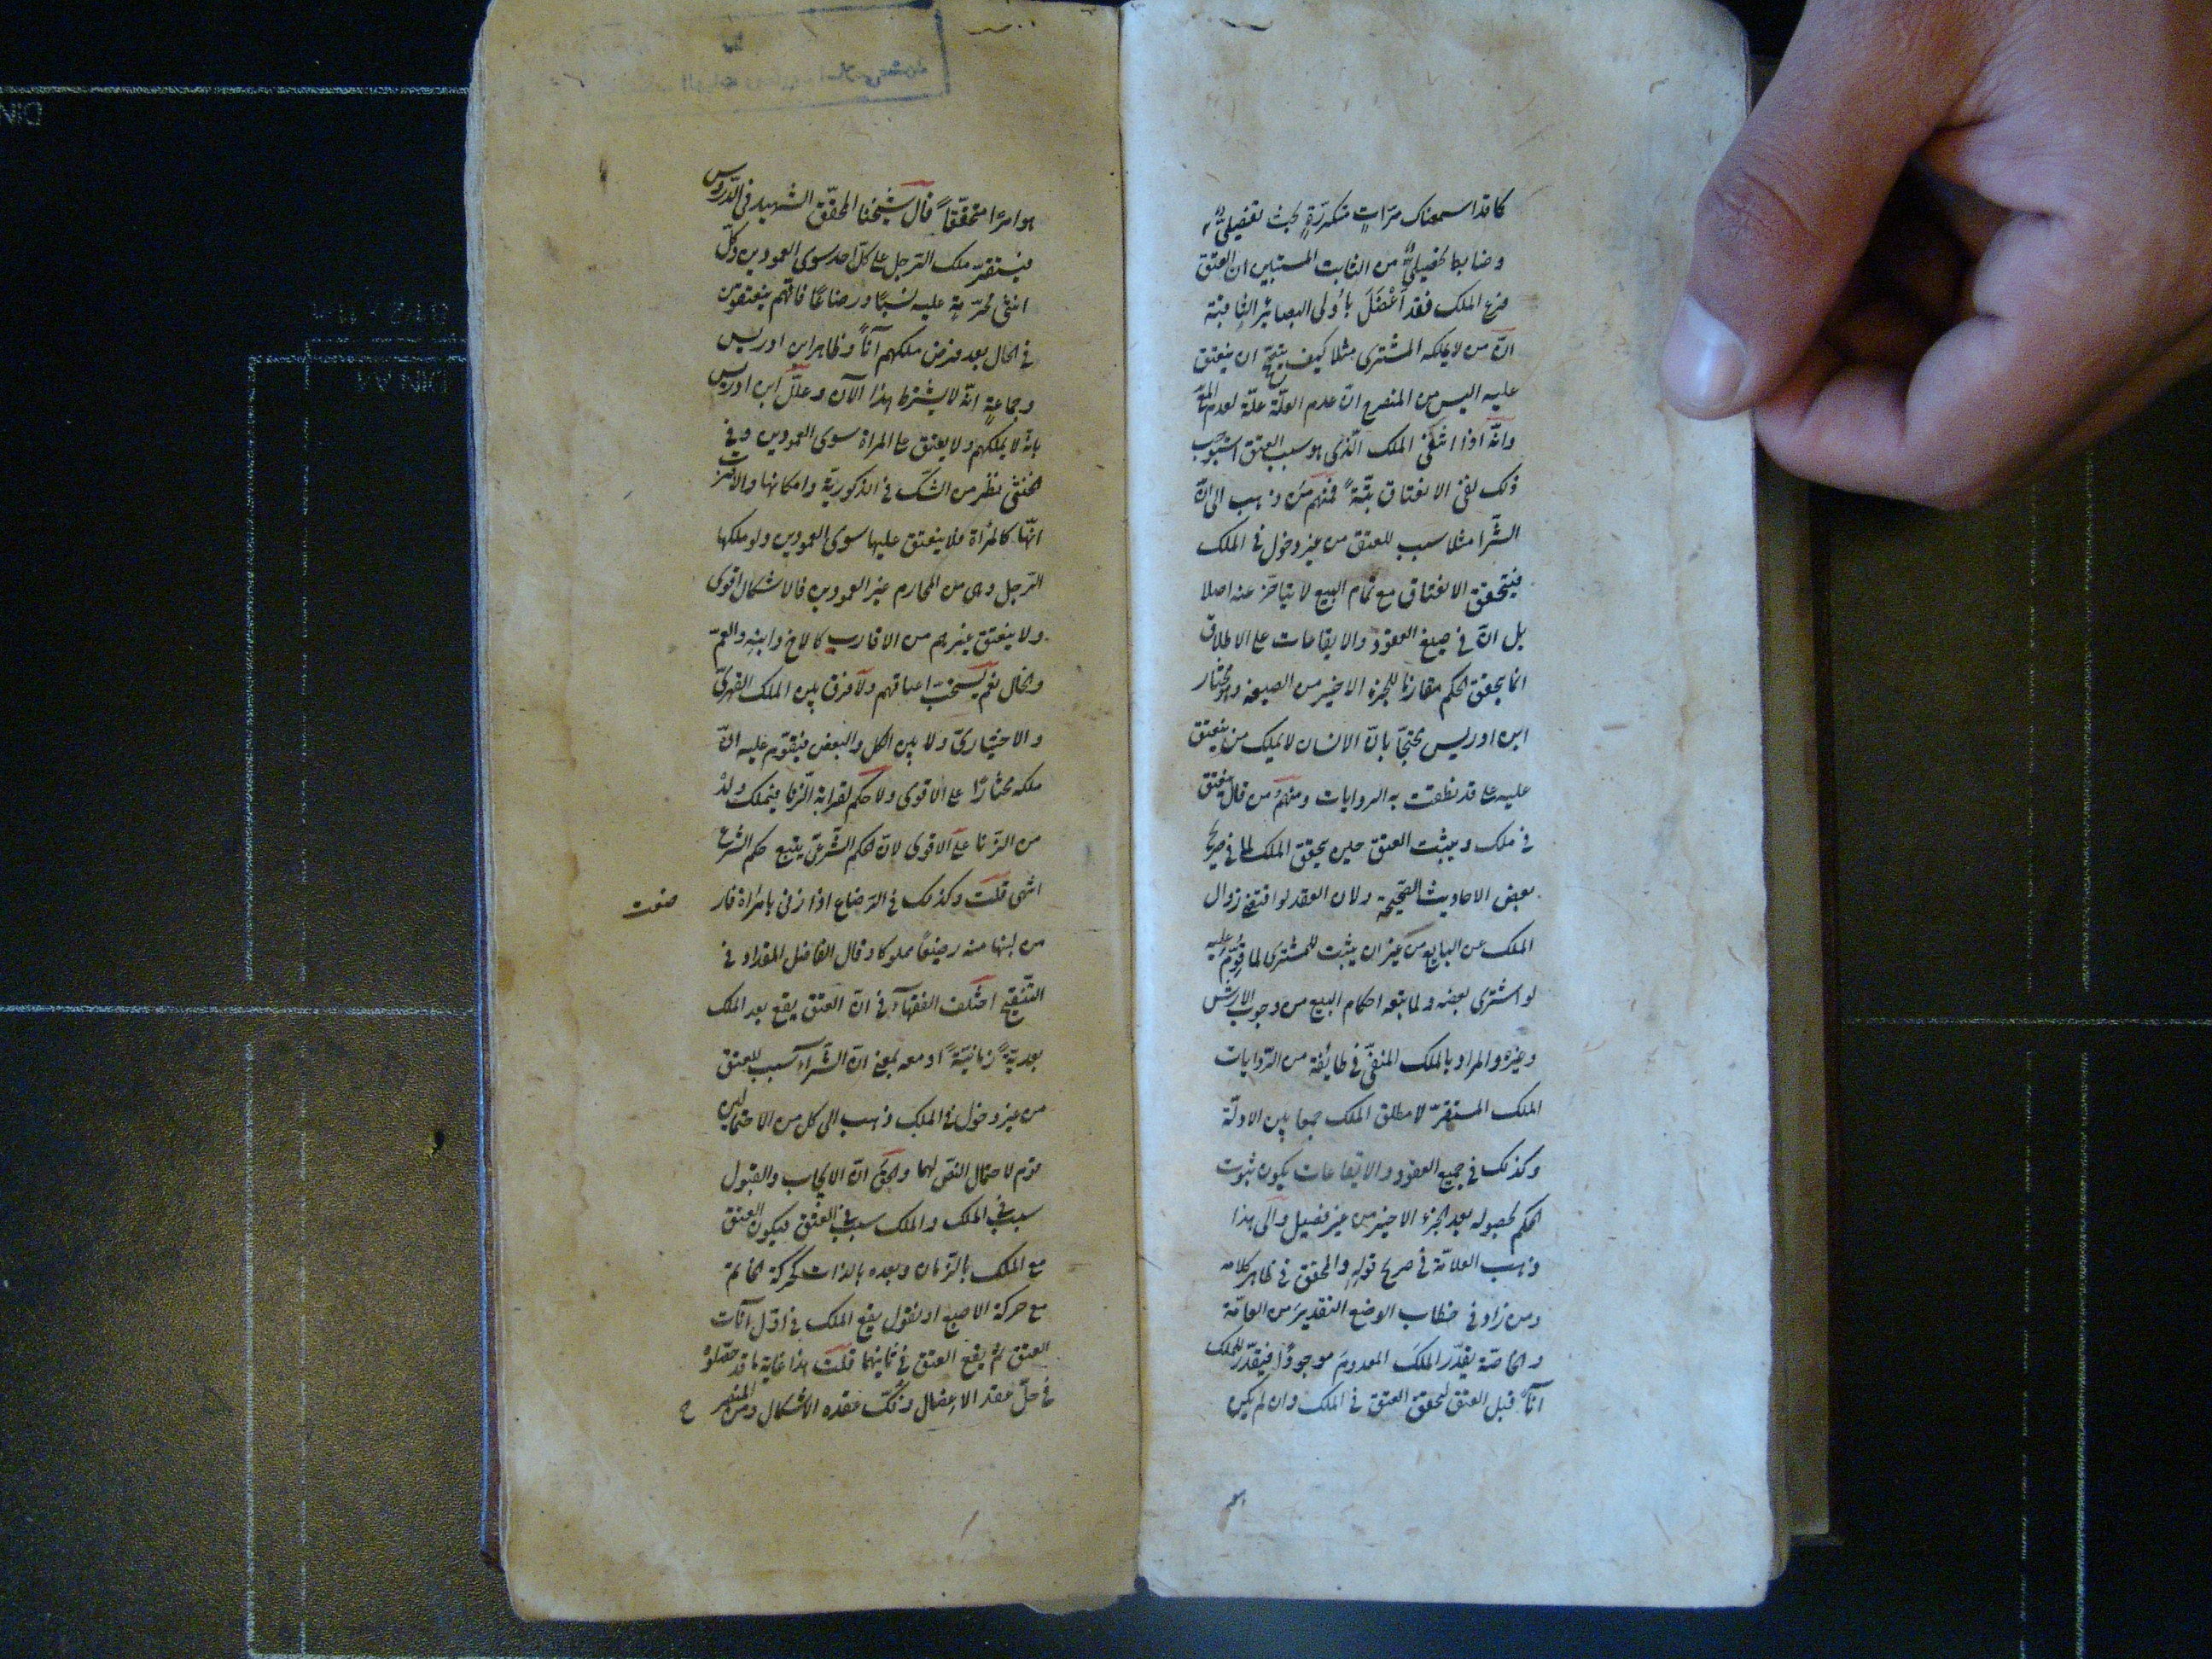 كما قد اسمعناك مرّات متكررة بحث تفضيليّ
وضابط تحصيليّ من الثابت المستبين ان العتق
فرع الملك فقد اعضل بأولى البصائر الثاقبة
انّ من لا يملكه المشترى مثلا كيف يتجه ان ينعتق
عليه اليس من المنصرح انّ عدم العلّة علّة لعدم
وانّه اذا انتفى الملك الّذى هو سبب العتق استوجب
ذلك نفى الانعتاق بتّةً فمنهم من ذهب الى انّ
الشّرا مثلا سبب للعتق من غير دخول فى الملك
فيتحقق الانعتاق مع تمام البيع لا يتاخّر عنه اصلا
بل انّ فى صيغ العقود والايقاعات على الاطلاق
انما يحقق الحكم مقارنا للجزء الاخير من الصيغه وهو مختار
ابن ادريس محتجّا بانّ الانسان لا يملك من ينعتق
عليه على قد نطقت به الروايات ومنهم من قال ينعتق
فى ملك ويثبت العتق حين يحقق الملك لما فى صريح
بعض الاحاديث الصّحيحة ولان العقد لو اقتضى زوال
الملك عن البايع من غير ان يثبت للمشترى لما قوّم عليه
لو اشترى بعضه ولما تبعه احكام البيع من وجوب الارش
وغيره والمراد بالملك المنفىّ فى طائفة من الرّوايات
الملك المستقرّ لا مطلق الملك جمعا بين الادلّة
وكذلك فى جميع العقود والايقاعات يكون ثبوت
الحكم لحصوله بعد الجزء الاخير من غير فصيل والى هذا
ذهب العلامّة فى صريح قوله والمحقق فى ظاهر كلامه
ومن زاد فى خطاب الوضع التقدير من العامّة
والخاصّة يقدّر الملك المعدوم موجودًا فيقدّر الملك
آنًا قبل العتق ليحقق العتق فى الملك وان لم يكن
هو امرًا متحقّقًا قال شيخنا المحقّق الشهيد فى الدّروس
فيستقرّ ملك الرّجل على كلّ احد سوى العمودين وكلّ
انثى محرّمة عليه نسبًا ورضاعًا فانّهم ينعتقون
فى الحال بعد فرض ملكهم آنًا وظاهر ابن ادريس
وجماعةٍ انّه لا يشترط هذا الآن وعلّل ابن ادريس
بانّه لا يملكهم ولا يعتق على المراة سوى العمودين وفى
الخنثى نظر من الشكّ فى الذكوريّة وامكانها والاقرب
انّها كالمرأة فلا ينعتق عليها سوى العمودين ولو ملكها
الرّجل وهى من المحارم غير العمودين فالاشكال اقوى
ولا ينعتق غيرهم من الاقارب كالاخ وابنه والعمّ
والخال نعم يستحبّ اعتاقهم ولا فرق بين الملك القهرىّ
والاختيارىّ ولا بين الكل والبعض فيقوّم عليه انّ
ملكه مختارًا على الاقوى ولا حكم لقرابة الزّنا فيملك ولدُه
من الزّنا على الاقوى لانّ الحكم الشّرعىّ يتبع حكم الشرع
انتهى قلت وكذلك فى الرّضاع اذا زنى بامرأة فار
ضعت
من لبنها منه رضيعًا مملوكا وقال الفاضل المقداد فى
التّنقيح اختلف الفقهاء فى انّ العتق يقع بعد الملك
بعديّة زمانيّةً او معه بمعنى انّ الشّراء سبب للعتق
من غير دخول فى الملك ذهب الى كل من الاحتمالين
قوم لاحتمال النصّ لهما والحقّ انّ الايجاب والقبول
سبب فى الملك والملك سبب فى العتق فيكون العتق
مع الملك بالزّمان وبعده بالذات كحركة الخاتم
مع حركة الاصبع او نقول يقع الملك فى اوّل آنات
العتق ثم يقع العتق فى ثانيهما قلت هذا غاية ما قد حصّلوه
فى حلّ عقد الاعضال وفكّ عقده الاشكال ومن المنصر
ح